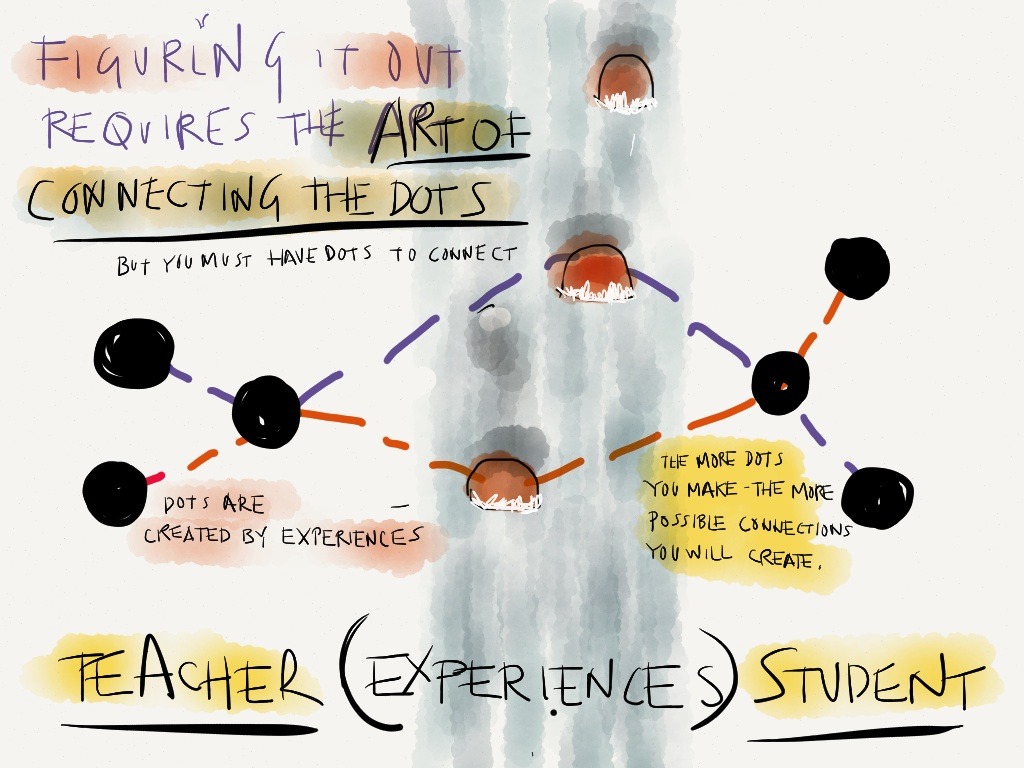 FIGURING IT OUT
REQUIRES THE ART OF
CONNECTING THE DOTS
BUT YOU MUST HAVE DOTS TO CONNECT
DOTS ARE
CREATED BY EXPERIENCES
THE MORE DOTS
YOU MAKE - THE MORE
POSSIBLE CONNECTIONS
YOU WILL CREATE.
TEACHER (EXPERIENCES) STUDENT